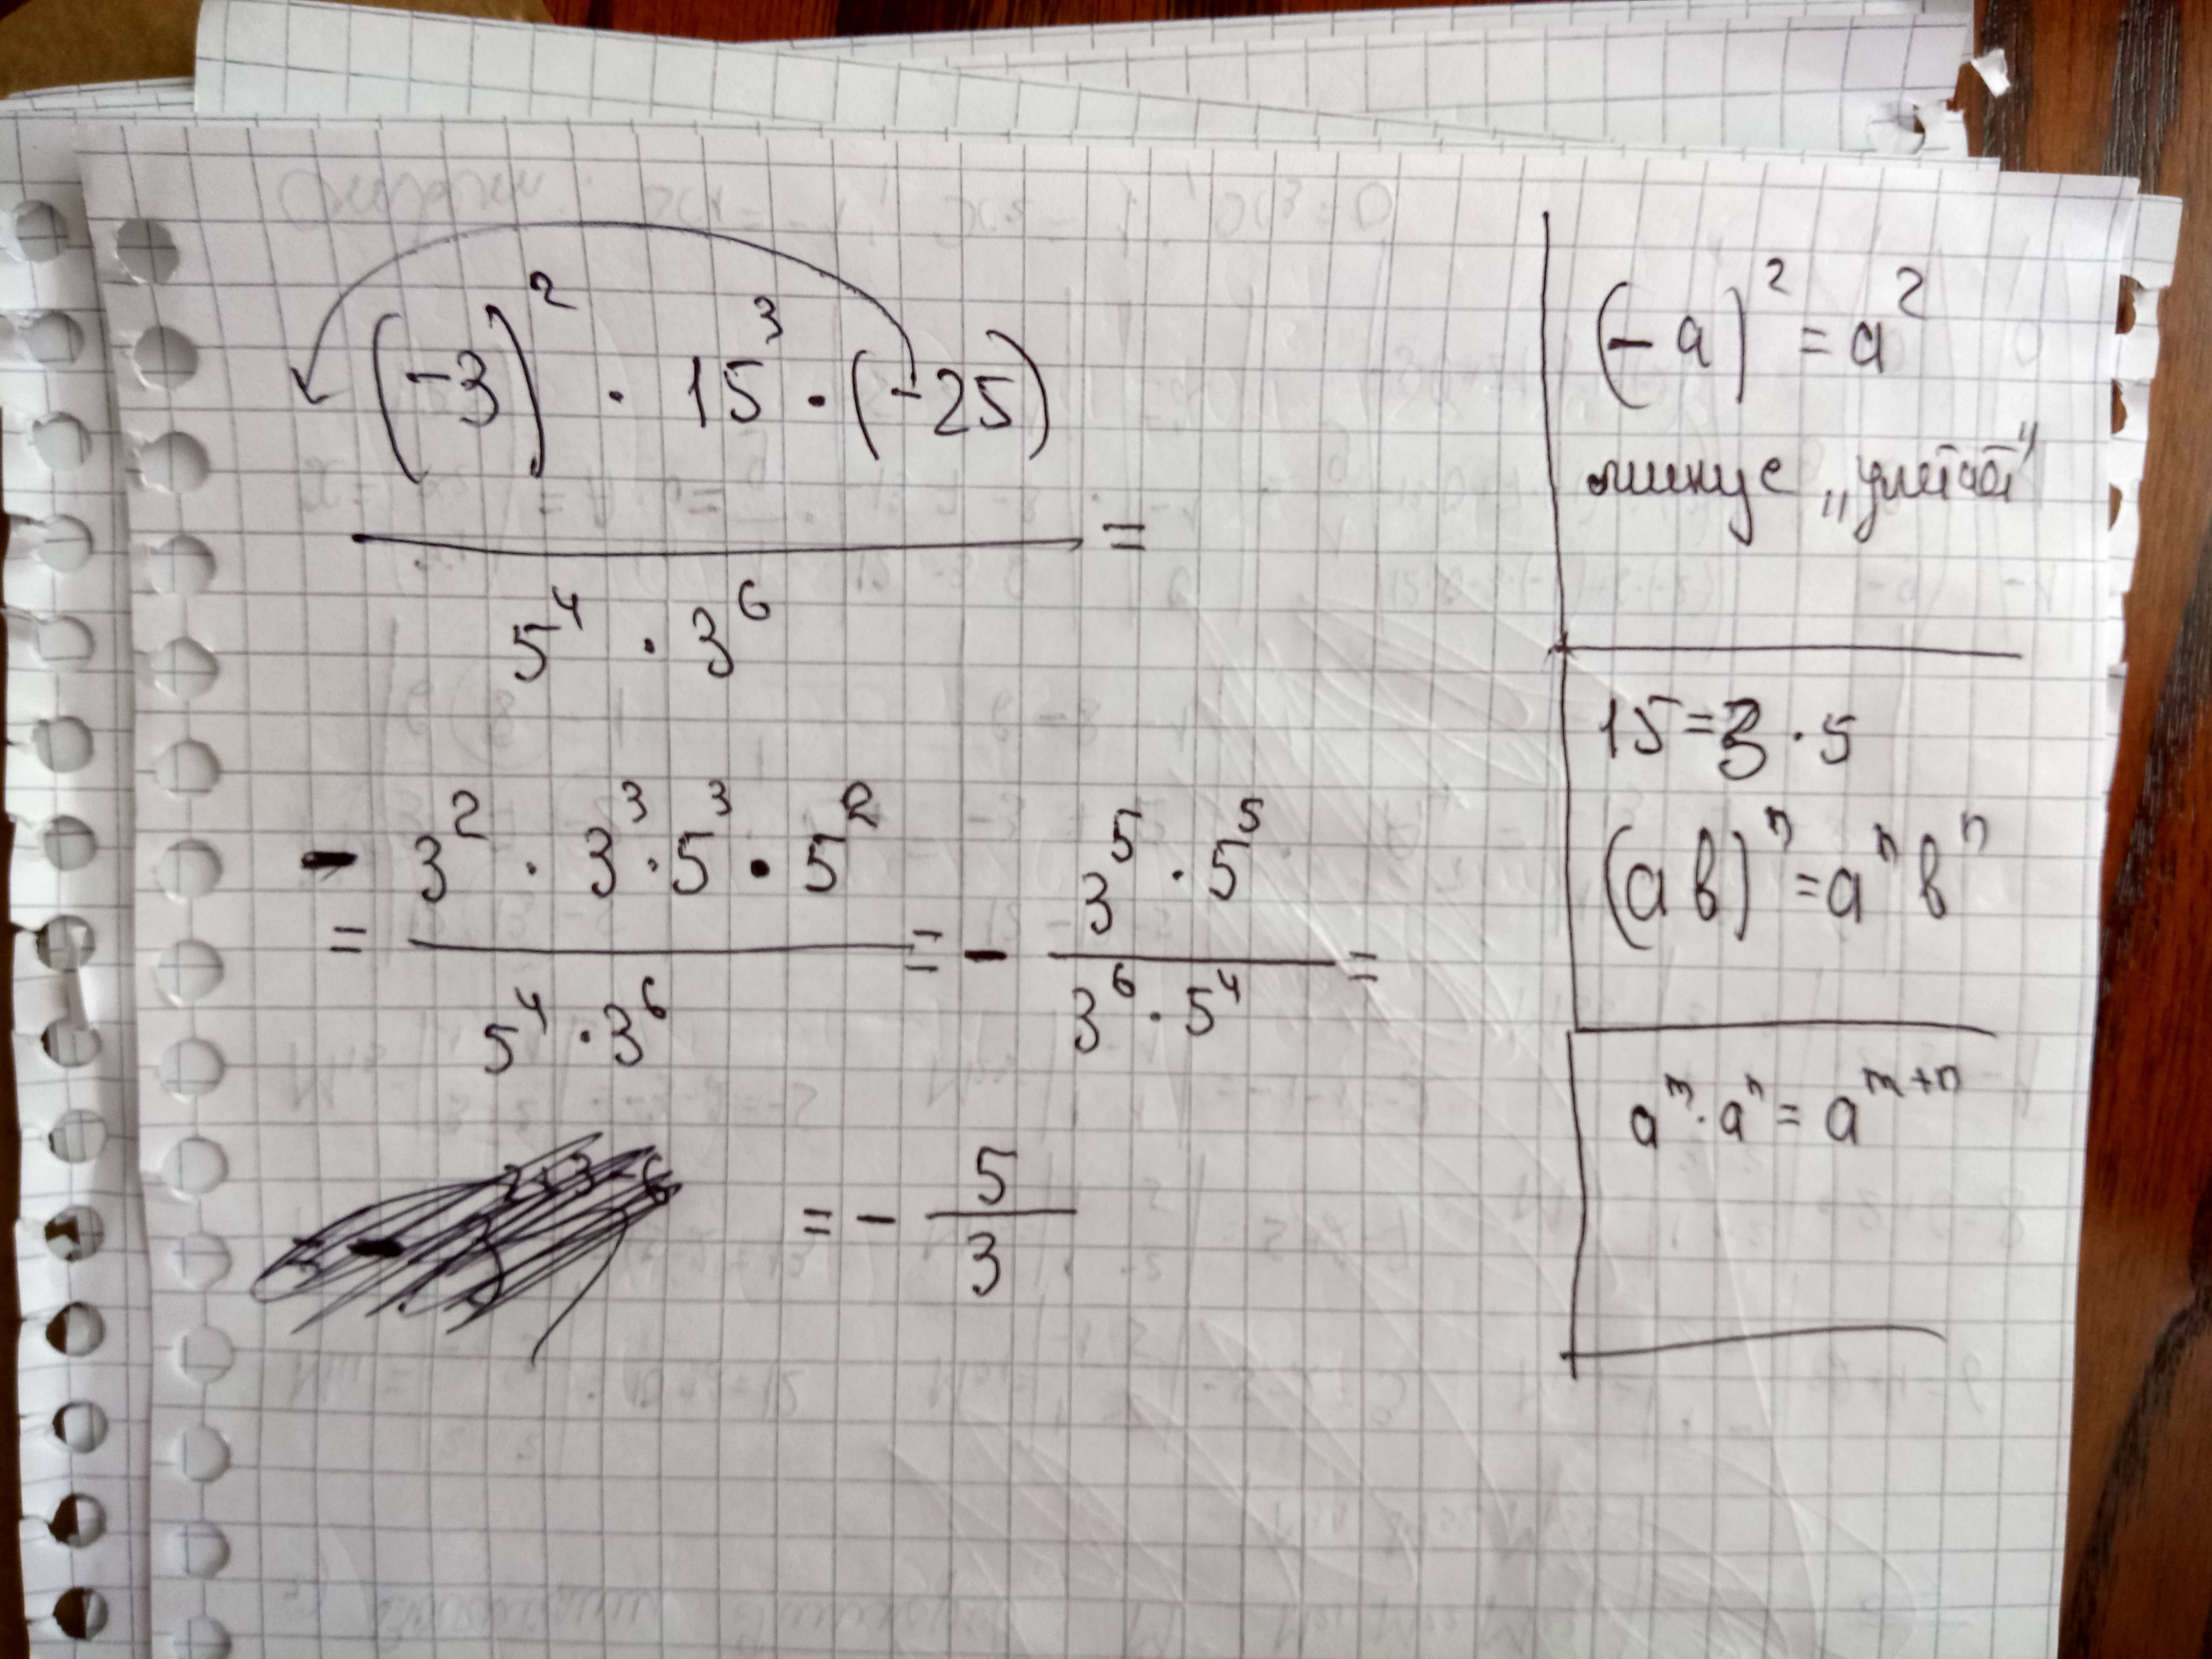 (-3)² · 15³ · (-25)
=
5⁴ · 3⁶
- 3² · 3³ · 5³ · 5² = - 3⁵ · 5⁵ =
= 5⁴ · 3⁶ 3⁶ · 5⁴
= - 5
3
(-a)² = a²
минус „улетает"
15 = 3 · 5
(ab)ⁿ = aⁿbⁿ
aᵐ · aⁿ = aᵐ⁺ⁿ